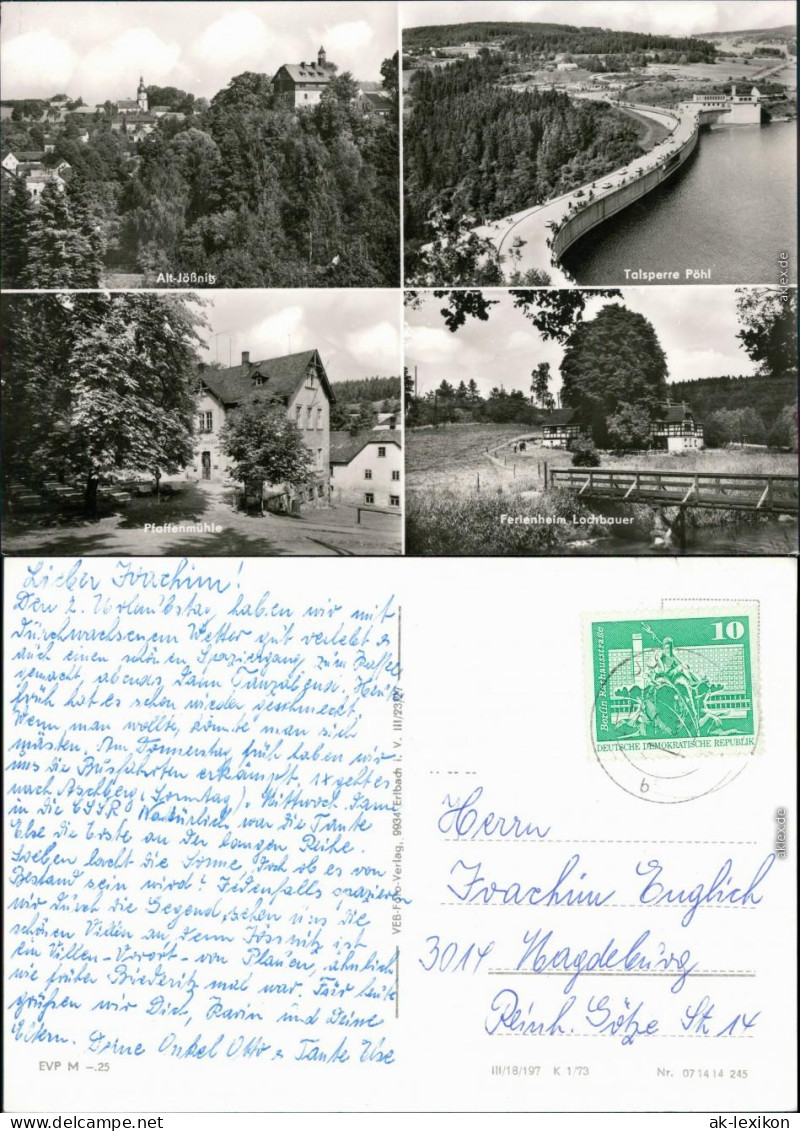 Alt-Jößnitz
Talsperre Pöhl
Pfaffenmühle
Ferienheim Lochbauer
Lieber Joachim!
Den 2. Urlaubstag haben wir mit
durchwachsenem Wetter gut verlebt
auch einen schönen Spaziergang zum Kaffee
gemacht, abends dann Tanzabend. Heute
früh hat es schon wieder geschmeckt.
Wenn man wollte, könnte man sich
mästen. Am Donnerstag früh haben wir
uns die Busfahrten erkämpft. 1x geht es
nach Aschberg (Sonntag). Mittwoch dann
in die ČSSR. Natürlich war die Tante
Else die Erste an der langen Reihe.
Soeben lacht die Sonne, doch ob es von
Bestand sein wird? Jedenfalls spazieren
wir durch die Gegend, sehen uns die
schönen Villen an denn Jössnitz ist
ein Villen-Vorort von Plauen, ähnlich
wie früher Biederitz mal war. Für heute
grüßen wir Dich, Karin und Deine
Eltern. Deine Onkel Otto & Tante Else
EVP M -.25
VEB-Foto-Verlag, 9934 Erlbach i. V. III/23/27
10
Berlin Rathausstraße
DEUTSCHE DEMOKRATISCHE REPUBLIK
b
Herrn
Joachim Englich
3014 Magdeburg
Reinh. Götze Str 14
III/18/197 K 1/73 Nr. 07 14 14 245
ak-lexikon.com